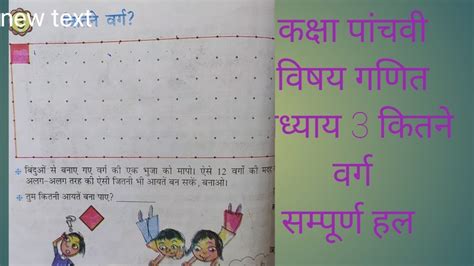 new text
वर्ग?
बिंदुओं से बनाए गए वर्ग की एक भुजा को मापो। ऐसे 12 वर्गों की
अलग-अलग तरह की ऐसी जितनी भी आयतें बन सकें, बनाओ।
तुम कितनी आयतें बना पाए?
कक्षा पांचवी
विषय गणित
ध्याय 3 कितने
वर्ग
सम्पूर्ण हल